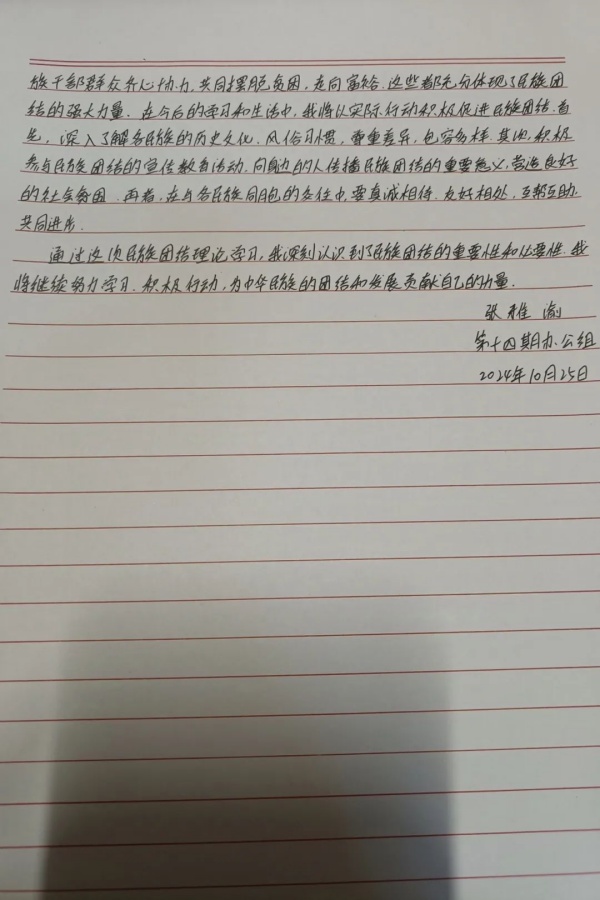 族干部群众齐心协力,共同摆脱贫困,走向富裕.这些都充分体现了民族团
结的强大力量.在今后的学习和生活中,我将以实际行动积极促进民族团结.首
先,深入了解各民族的历史文化、风俗习惯,尊重差异,包容多样.其次,积极
参与民族团结的宣传教育活动,向身边的人传播民族团结的重要意义,营造良好
的社会氛围.再者,在与各民族同胞的交往中,要真诚相待.友好相处,互帮互助.
共同进步.
通过这次民族团结理论学习,我深刻认识到了民族团结的重要性和必要性.我
将继续努力学习.积极行动,为中华民族的团结和发展贡献自己的力量.
张雅渝
第十四期办公组
2024年10月25日